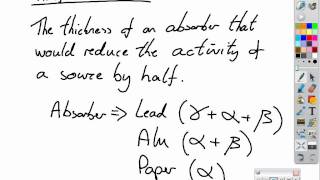 The thickness of an absorber that
would reduce the activity of
a source by half.
Absorber => Lead (γ + α + β)
Alu (α + β)
Paper (α)